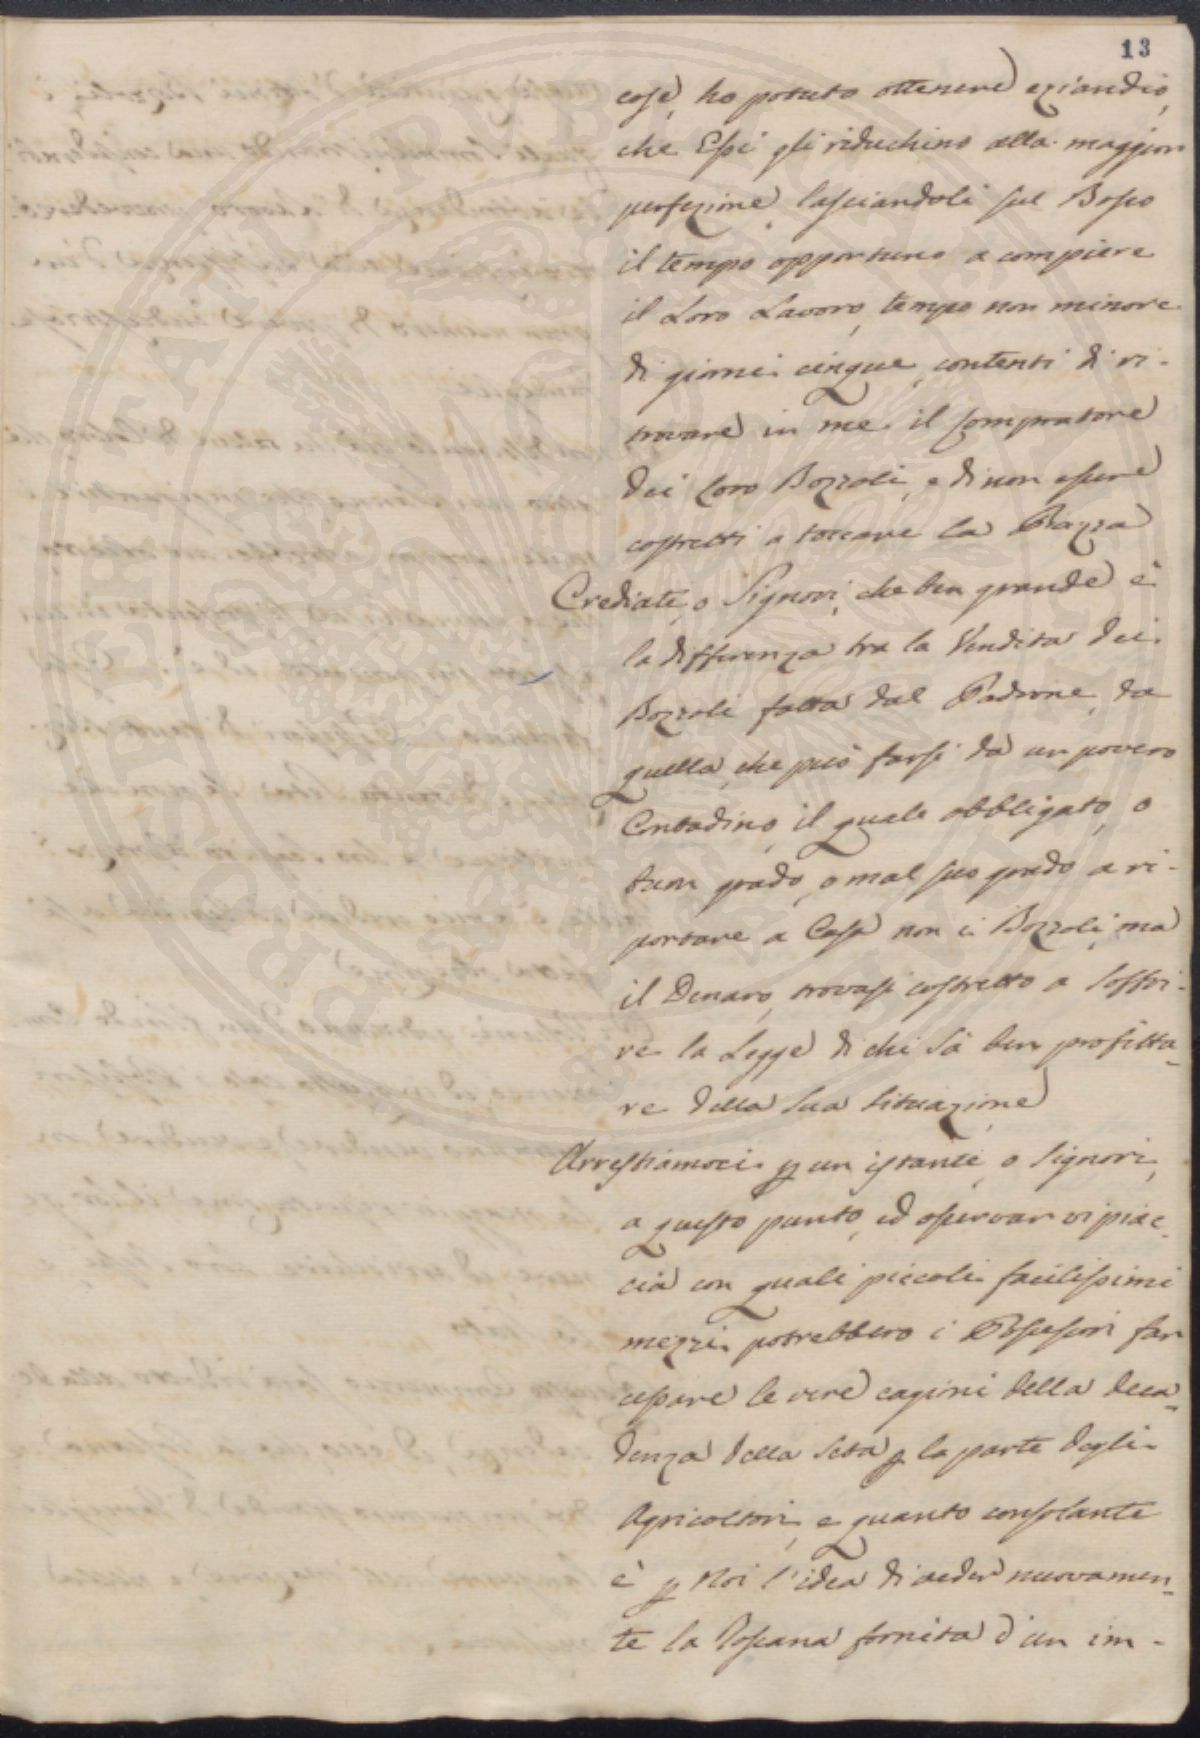 13
cose, ho potuto ottenere eziandio,
che Essi gli riduchino alla maggior
perfezione, lasciandoli sul Bosco
il tempo opportuno a compiere
il Loro Lavoro, tempo non minore
di giorni cinque, contenti di ri-
trovare in me il Compratore
dei loro Bozzoli, e di non essere
costretti a toccare la Piazza
Crediate, o Signori, che ben grande è
la differenza tra la Vendita dei
Bozzoli fatta dal Padrone, da
quella, che può farsi da un povero
Contadino, il quale obbligato, o
buon grado, o mal suo grado, a ri-
portare a Casa non i Bozzoli, ma
il Denaro, trovasi costretto a soffri-
re la Legge di chi sà ben profitta-
re della sua situazione
Arrestiamoci p un istante, o Signori,
a questo punto, ed osservar vi piac-
cia con quali piccoli facilissimi
mezzi potrebbero i Possessori far
cessare le vere cagioni della deca-
denza della seta p la parte degli
Agricoltori, e quanto consolante
è p Noi l'idea di veder nuovamen-
te la Toscana fornita d'un im-